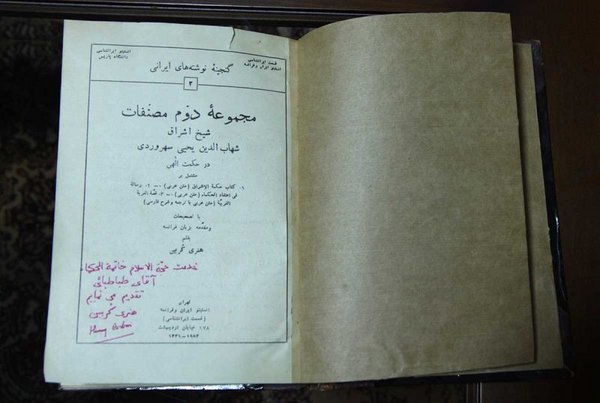 انستیتو ایرانشناسی
دانشگاه پاریس
قسمت ایرانشناسی
انستیتو ایران و فرانسه
گنجینهٔ نوشته‌های ایرانی
۲
مجموعهٔ دوّم مصنّفات
شیخ اشراق
شهاب الدین یحیی سهروردی
در حکمت الهی
مشتمل بر
۱. کتاب حکمة الإشراق (متن عربی) ۰-۰ ۲. رسالة
فی اعتقاد الحکماء (متن عربی) ۰-۰ ۳. قصّة الغربة
الغربیّة (متن عربی با ترجمه و شرح فارسی)
با تصحیحات
ومقدّمه بزبان فرانسه
بقلم
هنری کُربین
خدمت حجّة الاسلام خاتمة الحکماء
آقای طباطبائی
تقدیم می نمایم
هنری کُربین
Henry Corbin
تهران
انستیتو ایران و فرانسه
(قسمت ایرانشناسی)
۱۷۸ خیابان اردیبهشت
۱۹۵۲ - ۱۳۳۱